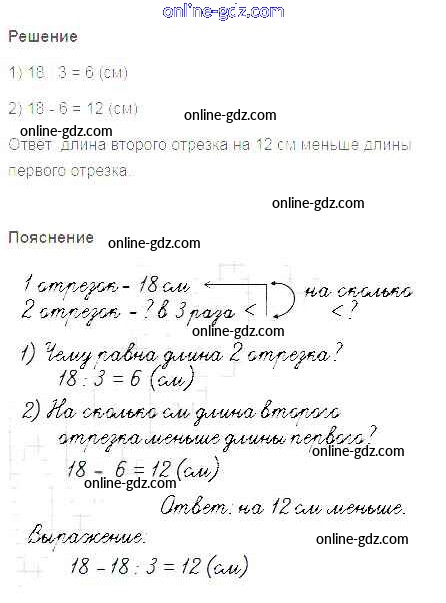 online-gdz.com
Решение
1) 18 : 3 = 6 (см)
online-gdz.com
2) 18 - 6 = 12 (см)
online-gdz.com
online-gdz.com
Ответ: длина второго отрезка на 12 см меньше длины
первого отрезка.
online-gdz.com
Пояснение
online-gdz.com
1 отрезок - 18 см
на сколько
2 отрезок - ? в 3 раза <
< ?
online-gdz.com
1) Чему равна длина 2 отрезка?
18 : 3 = 6 (см)
online-gdz.com
2) На сколько см длина второго
отрезка меньше длины первого?
online-gdz.com
18 - 6 = 12 (см)
online-gdz.com
Ответ: на 12 см меньше.
Выражение:
online-gdz.com
18 - 18 : 3 = 12 (см)
online-gdz.com